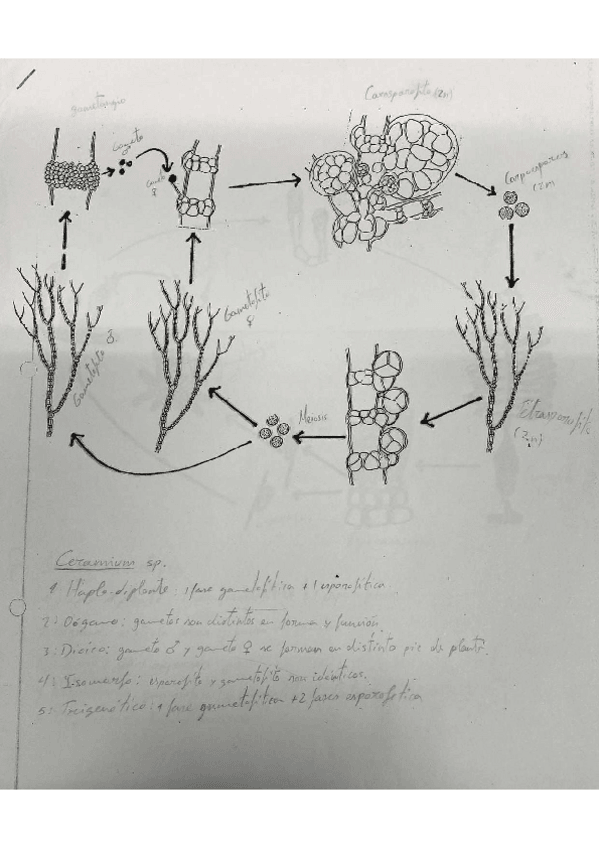 gametangio
Carosporofito (2n)
Gameto
Gameto ♀
Carpósporas
(2n)
Gametofito ♀
Gametofito ♂
Meiosis
Tetrasporofito
(2n)
Ceramium sp.
1: Haplo-diplonte: 1 fase gametofítica + 1 esporofítica
2: Oógamo: gametos son distintos en forma y función.
3: Dioico: gameto ♂ y gameto ♀ se forman en distinto pie de planta.
4: Isomorfo: esporofito y gametofito son idénticos.
5: Trigenético: 1 fase gametofítica + 2 fases esporofítica